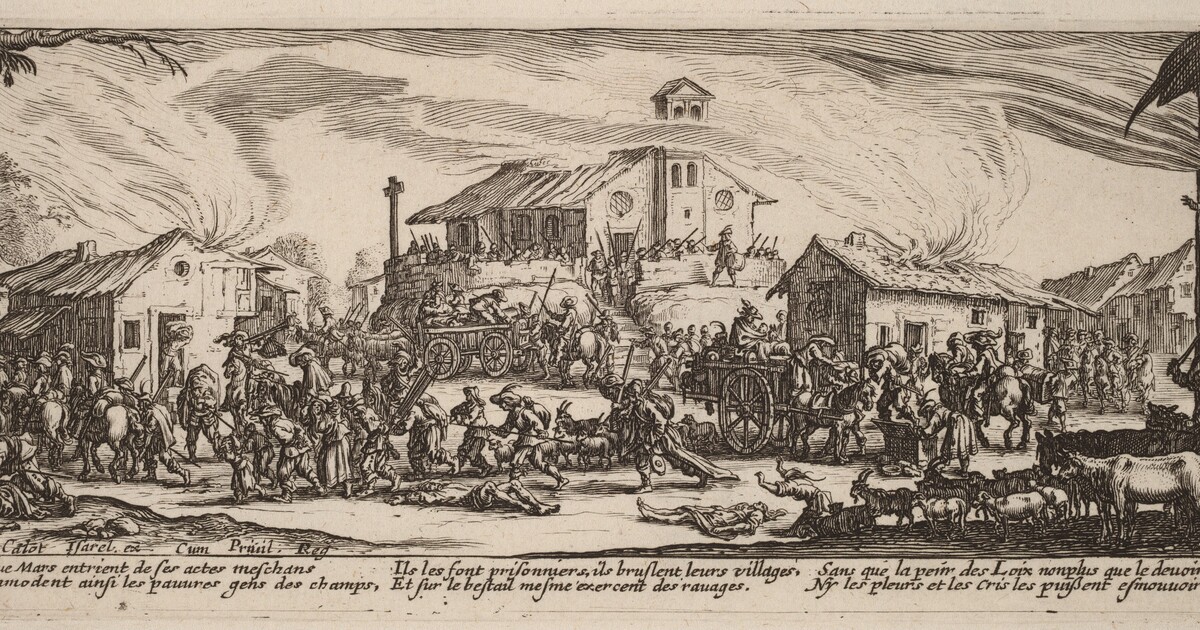 Callot Israel. ex Cum Priuil. Reg
ue Mars entrient de ses actes meschans
amodent ainsi les pauures gens des champs,
Ils les font prisonniers, ils bruslent leurs villages,
Et sur le bestail mesme exercent des rauages.
Sans que la peur des Loix nonplus que le deuoir
Ny les pleurs et les Cris les puissent esmouuoir